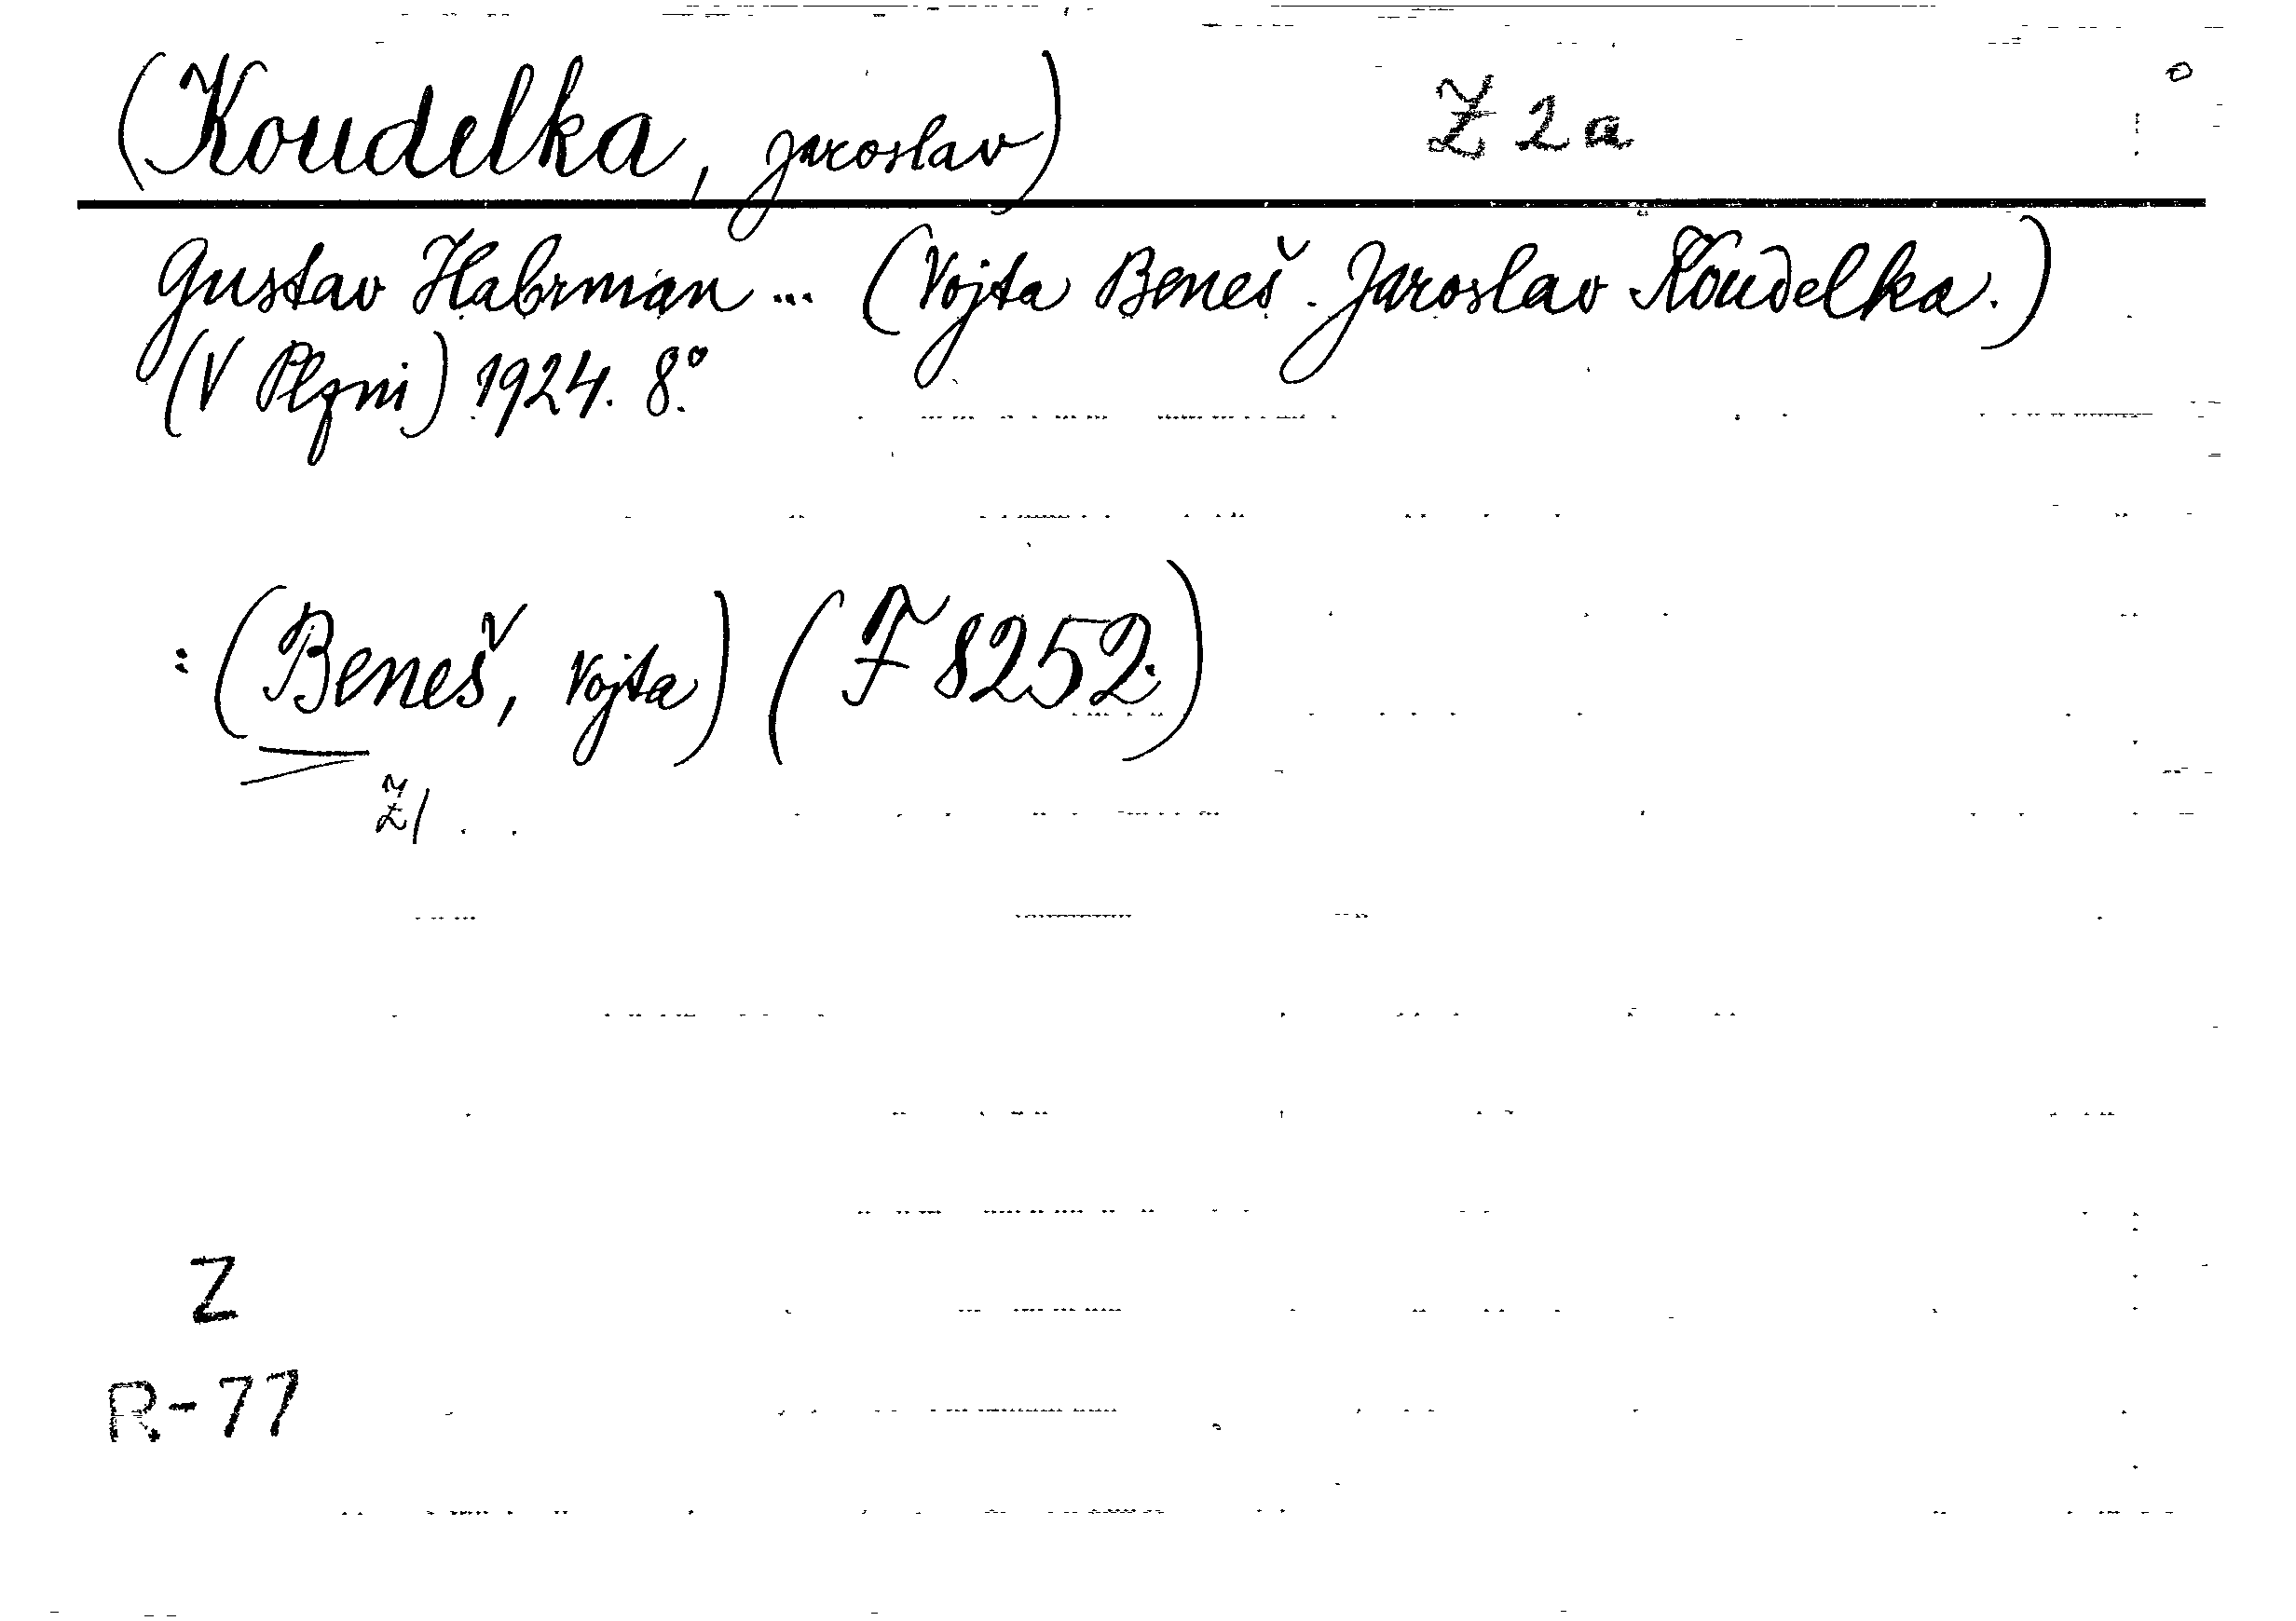 (Koudelka, Jaroslav) Ž 2a
Gustav Habrman ... (Vojta Beneš. Jaroslav Koudelka.)
(V Plzni) 1924. 8°.
: (Beneš, Vojta) (F 8252.)
Ž1
Z
R-77